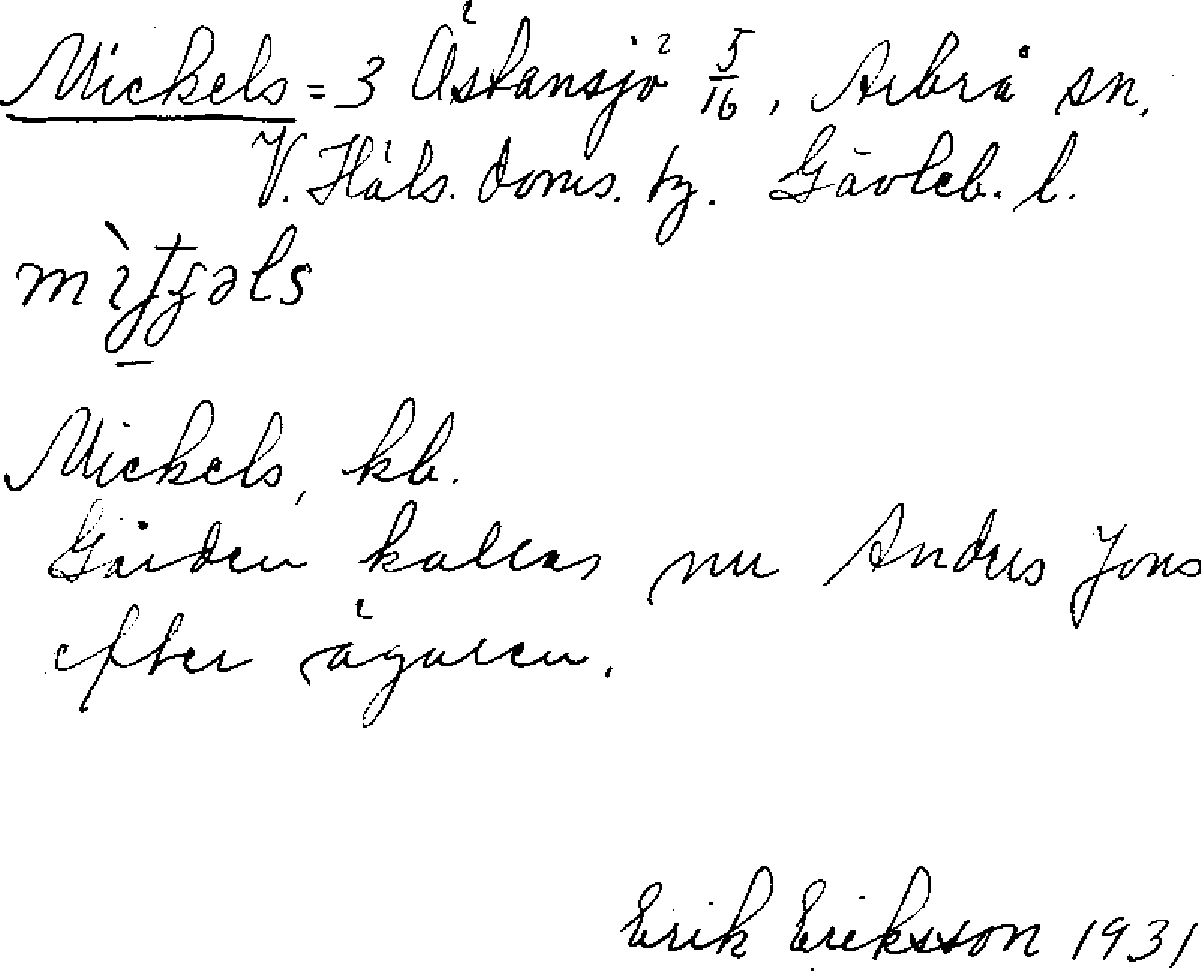 Mickels = 3 Åstansjö 5/16, Arbrå sn.
V. Häls. doms. tg. Gävleb. l.
Mickels, kb.
Gården kallas nu Anders Jons
efter ägaren.
Erik Eriksson 1931